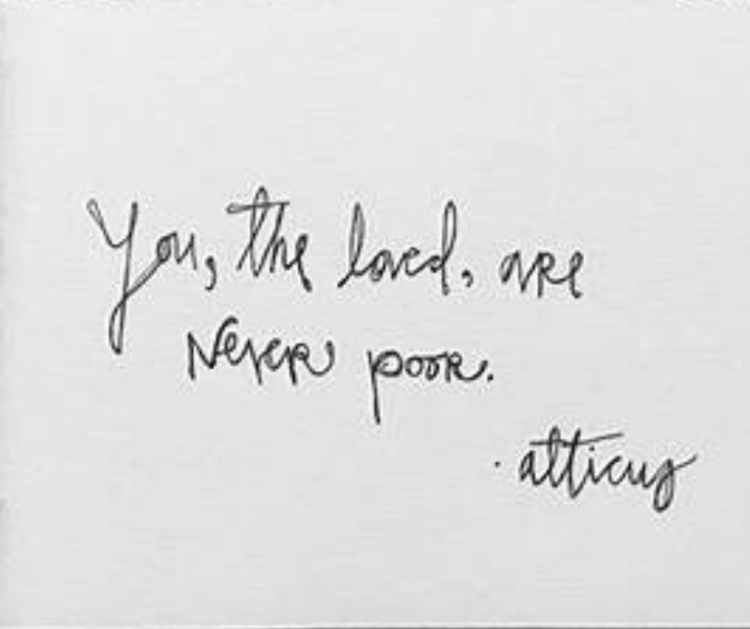 You, the loved, are
Never poor.
· atticus